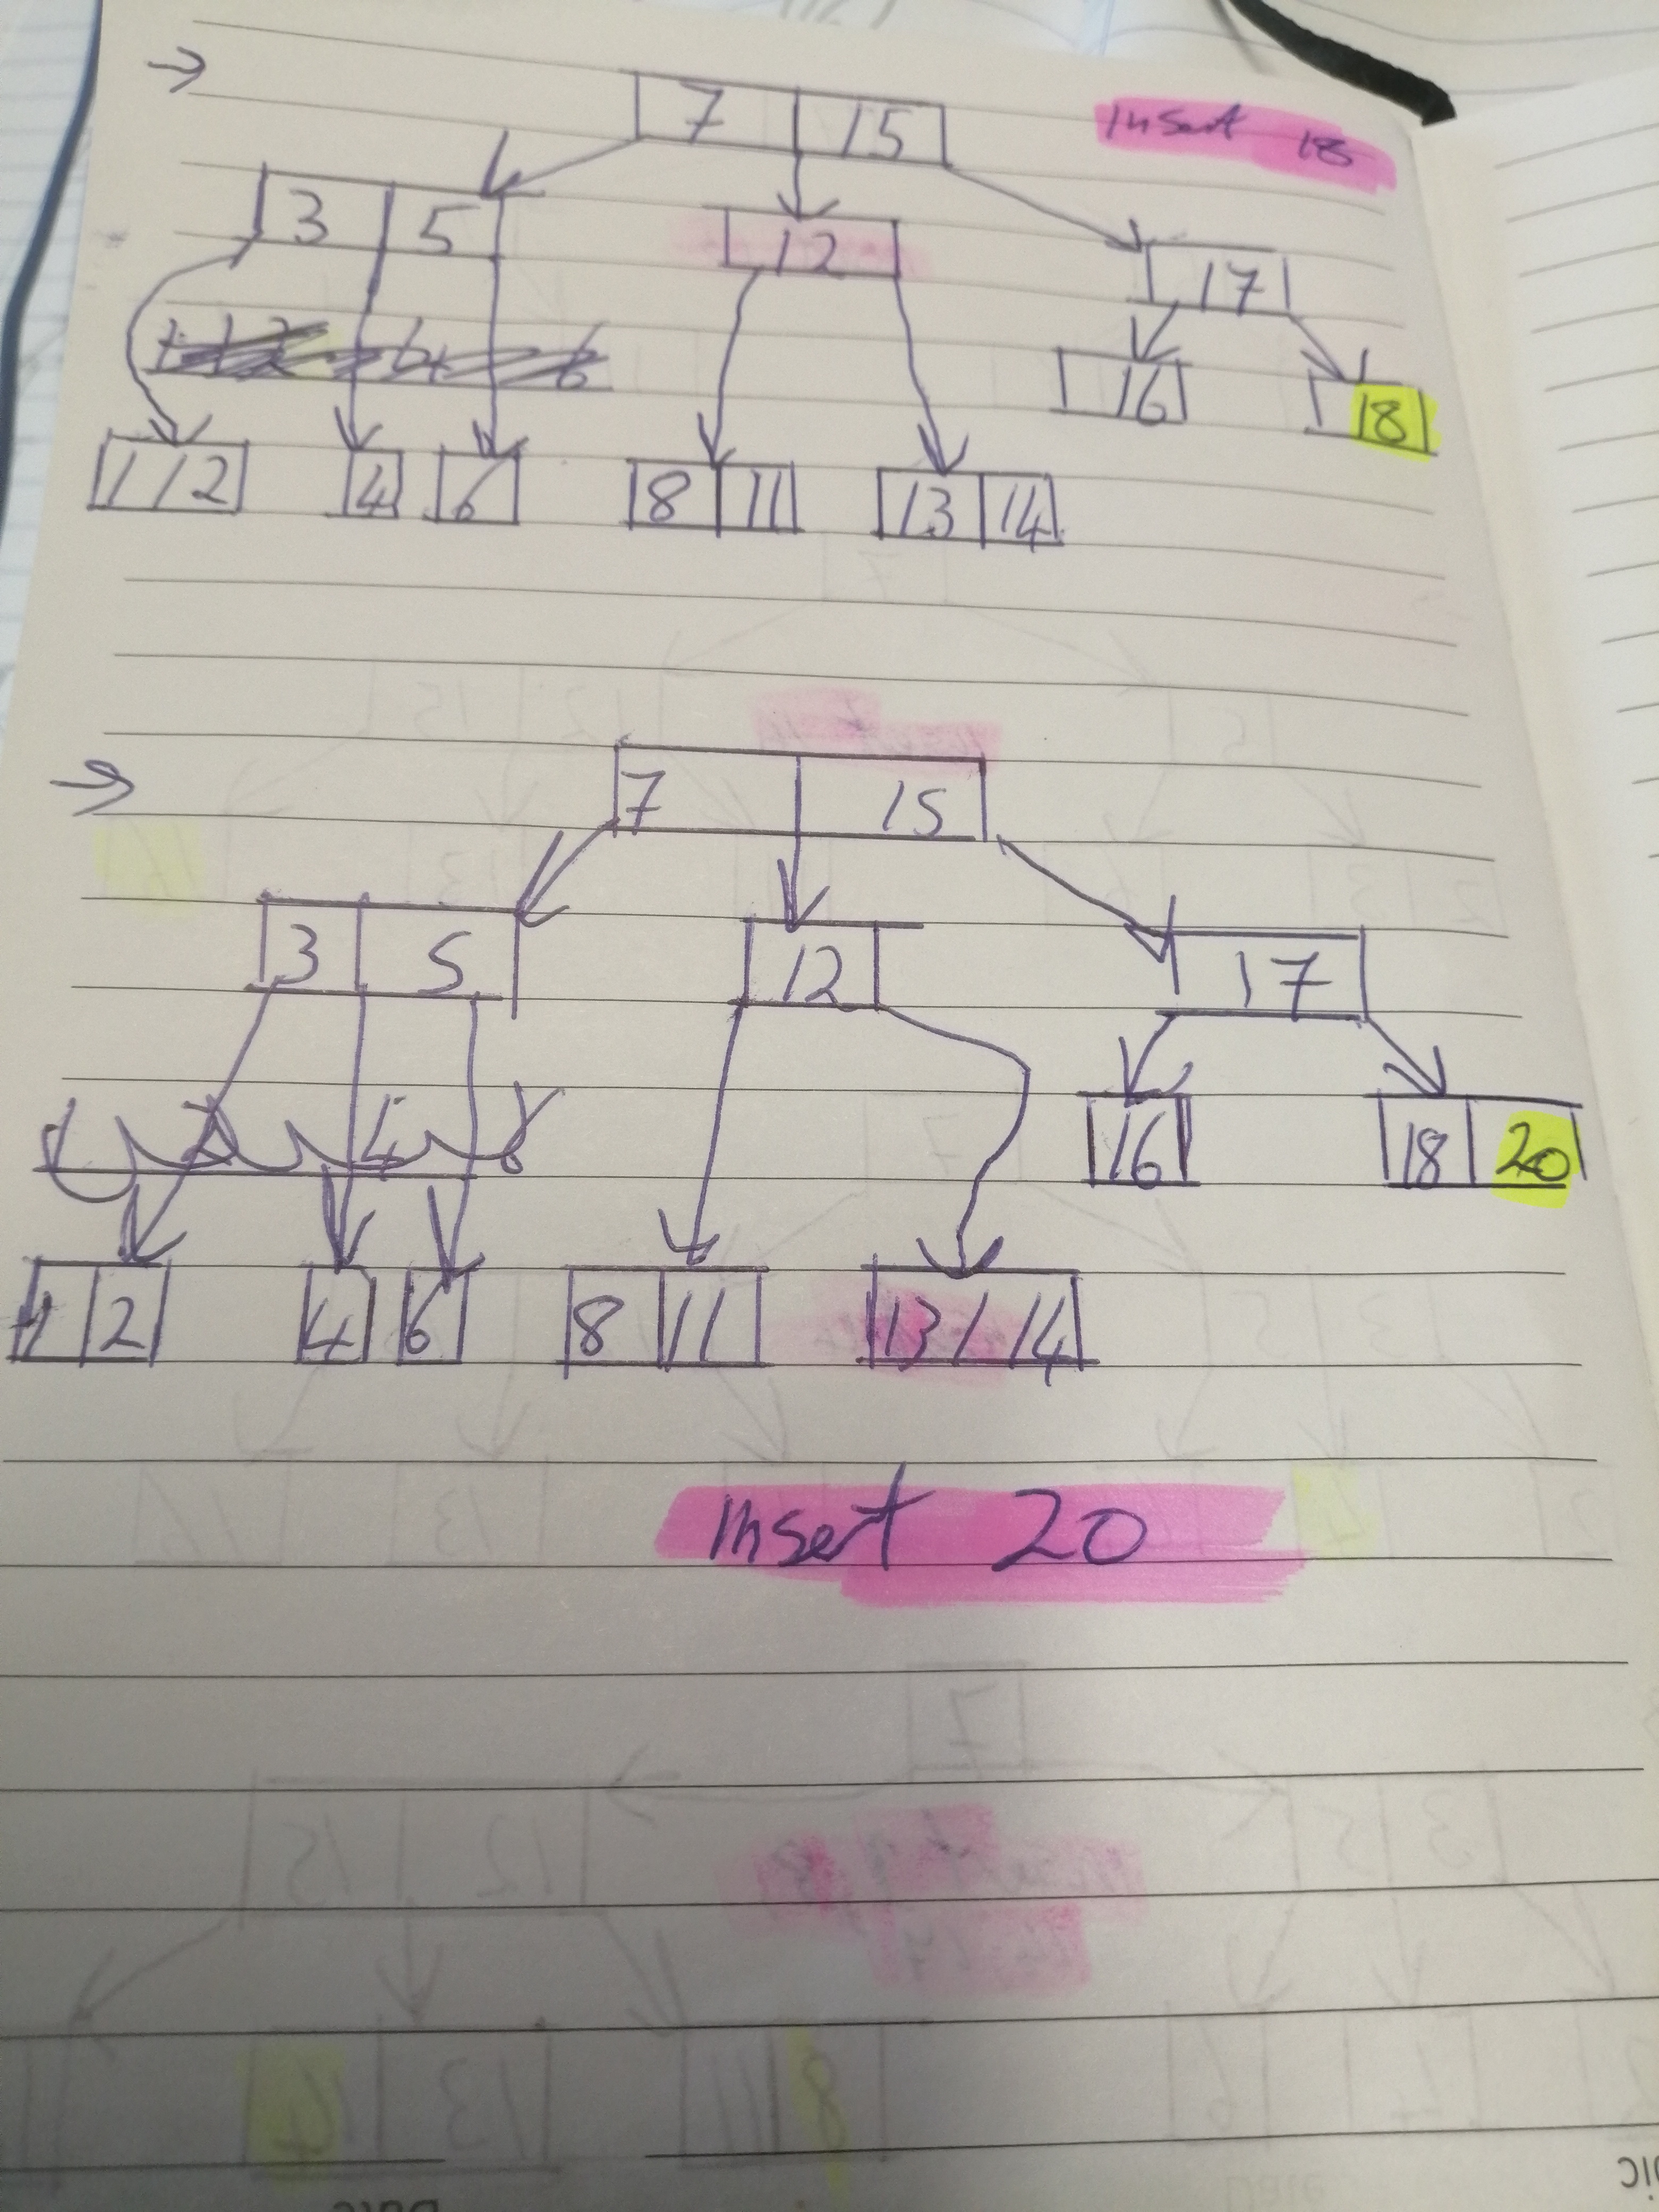 → 7 15 Insert 18
3 5 12 17
16 18
1 2 4 6 8 11 13 14
→ 7 15
3 5 12 17
2 4 16 18 20
1 2 4 6 8 11 13 14
Insert 20